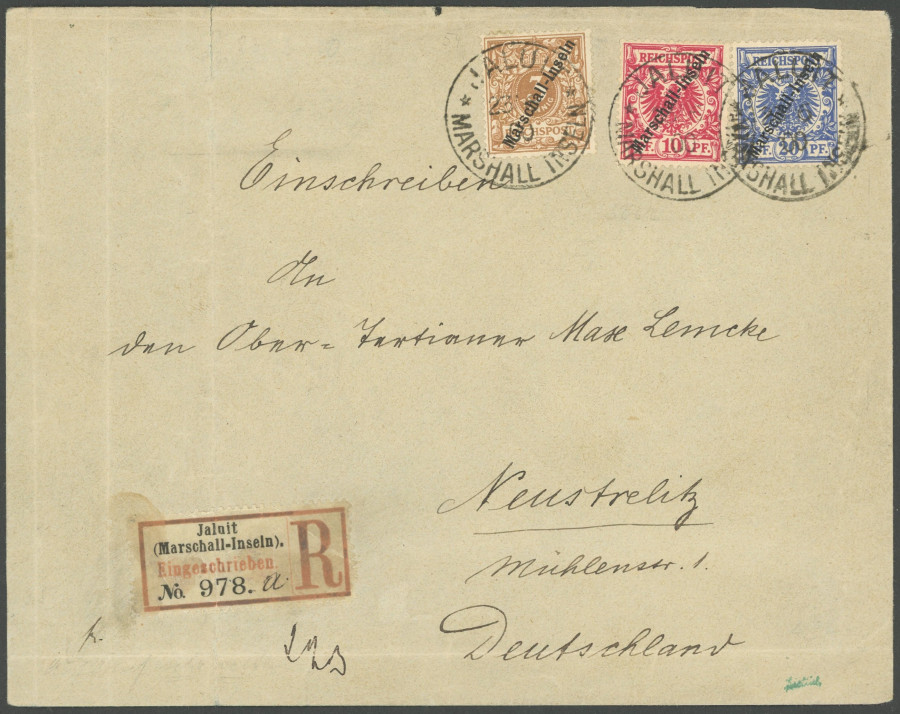 JALUIT
MARSHALL INSELN
Marschall-Inseln
REICHSPOST
Marschall-Inseln
10 PF.
JALUIT
MARSHALL INSELN
REICHSPOST
Marschall-Inseln
20 PF.
JALUIT
MARSHALL INSELN
Einschreiben
An
den Ober-Tertianer Max Lemcke
Neustrelitz
Mühlenstr. 1.
Deutschland
Jaluit
(Marschall-Inseln).
Eingeschrieben.
No. 978. a.
R